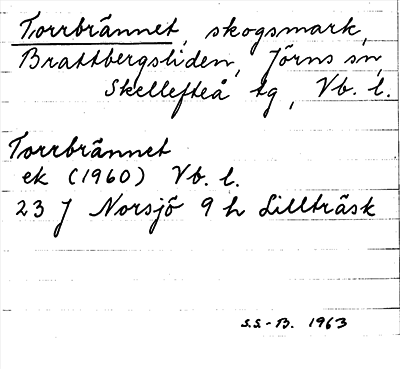 Torrbrännet, skogsmark,
Brattbergsliden, Jörns sn,
Skellefteå tg, Vb. l.
Torrbrännet
ek (1960) Vb. l.
23 J Norsjö 9 h Lillträsk
S.S.-B. 1963